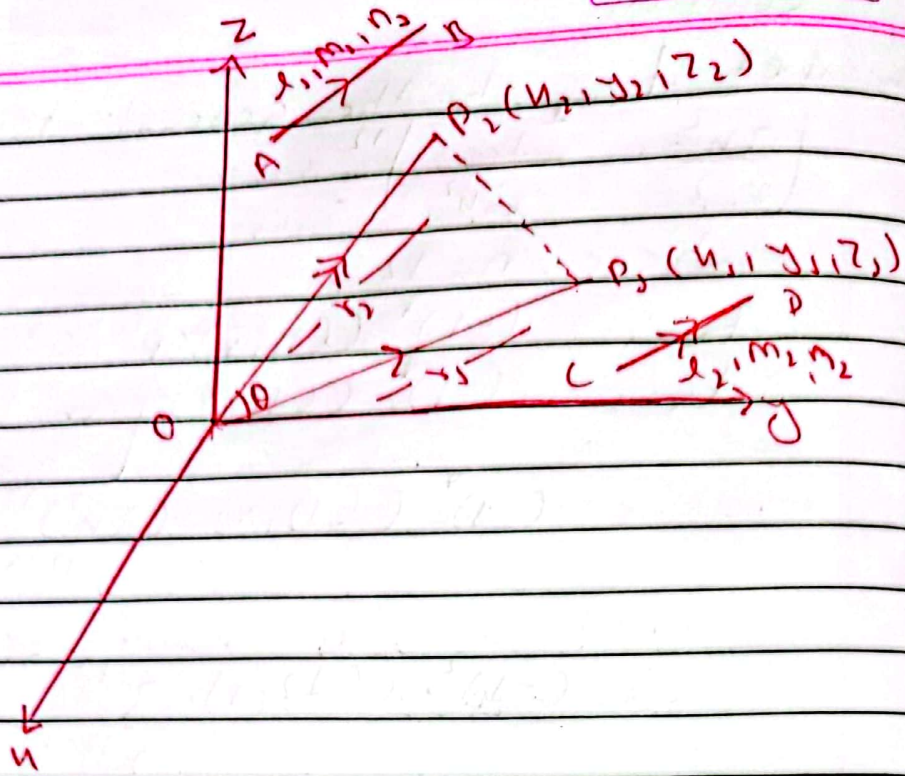 z
l₁, m₁, n₁
B
A
P₂ (x₂, y₂, z₂)
P₁ (x₁, y₁, z₁)
r₂
D
r₁
C
l₂, m₂, n₂
θ
O
y
x